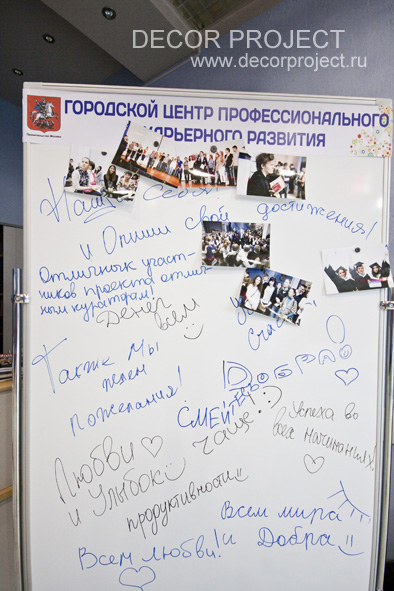 DECOR PROJECT
www.decorproject.ru
ГОРОДСКОЙ ЦЕНТР ПРОФЕССИОНАЛЬНОГО
КАРЬЕРНОГО РАЗВИТИЯ
себя
и Опиши свой достижения!
Отличных участ-
ников проекта отлич-
ным кураторам!
Денег
всем
Также мы
ждем
пожелания!
Добра
СМЕЙТЕСЬ
чаще :)
Успеха во
всех начинаниях!
Любви
и Улыбок
продуктивности!!
Всем мира
и Добра
Всем любви!